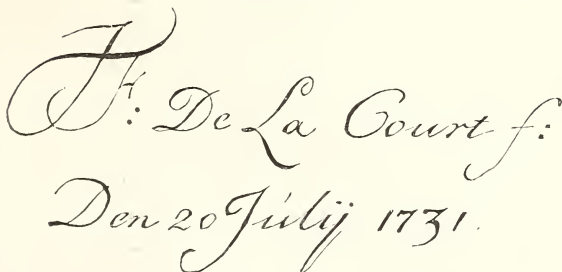 JF: De La Court f:
Den 20 Júlÿ 1731.